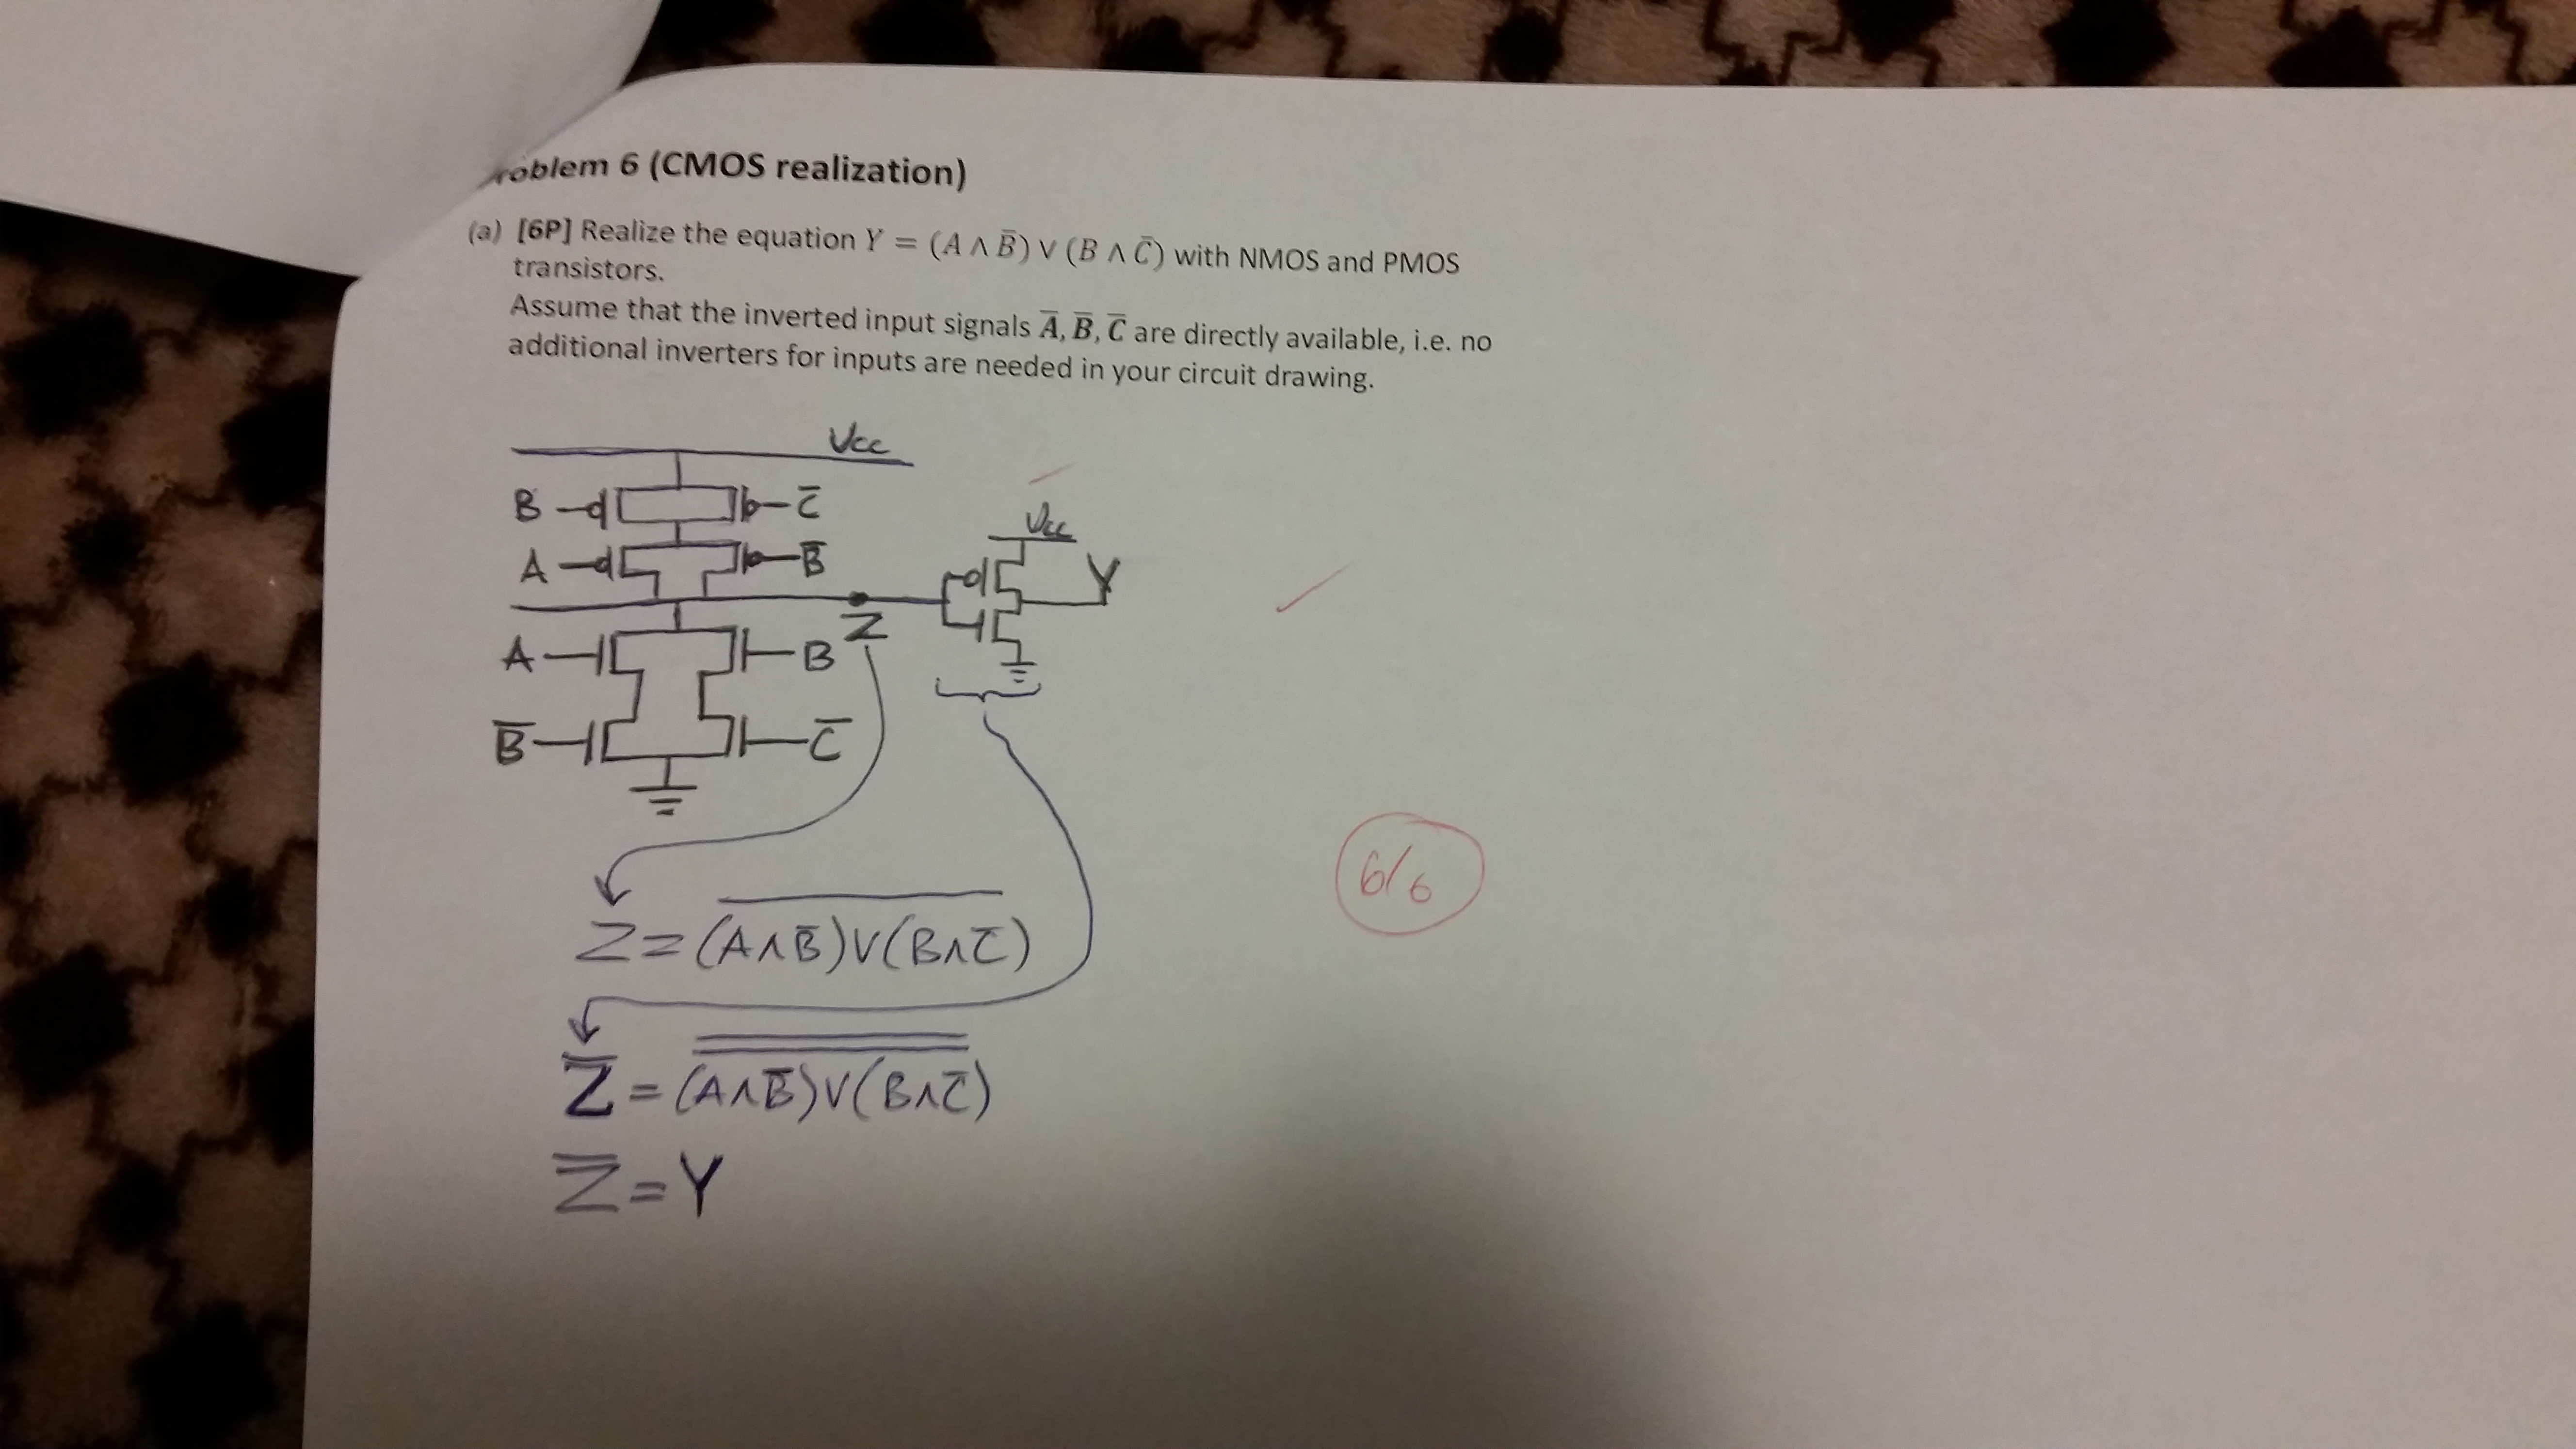 roblem 6 (CMOS realization)
(a) [6P] Realize the equation Y = (A ∧ B̅) ∨ (B ∧ C̅) with NMOS and PMOS
transistors.
Assume that the inverted input signals A̅, B̅, C̅ are directly available, i.e. no
additional inverters for inputs are needed in your circuit drawing.
Vcc
B C̅
Vcc
A B̅
Y
Z
A B
B̅ C̅
6/6
Z = \overline{(A∧B̅)∨(B∧C̅)}
Z̅ = \overline{\overline{(A∧B̅)∨(B∧C̅)}}
Z̅ = Y